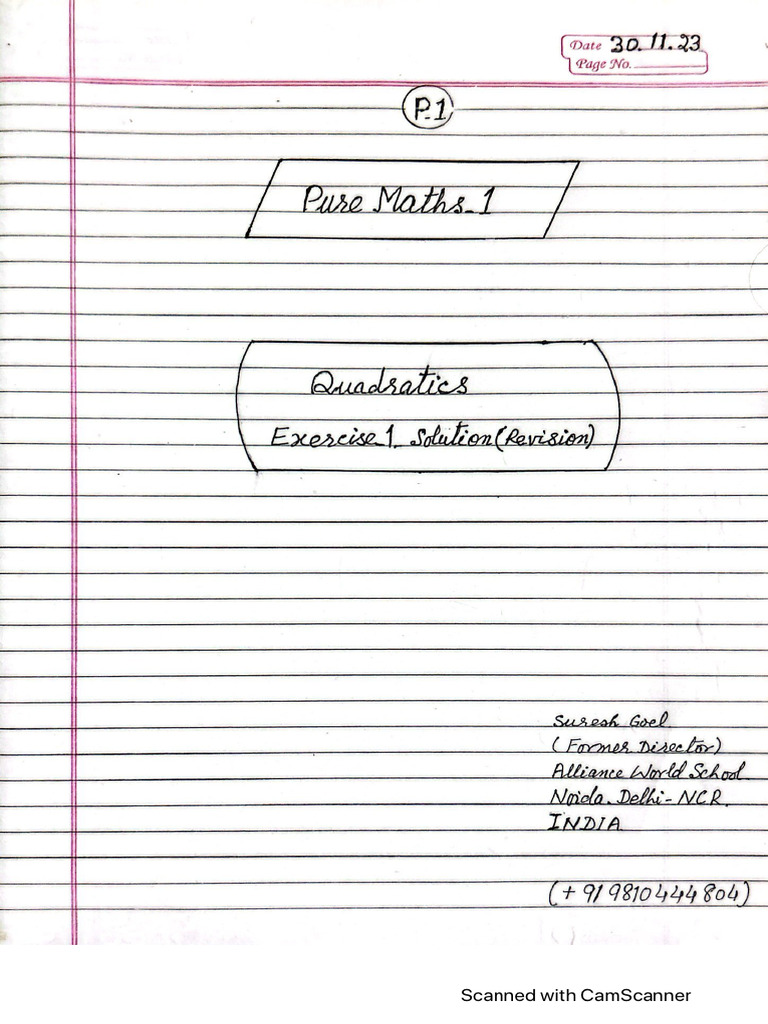 Date 30.11.23
Page No.
P.1
Pure Maths-1
Quadratics
Exercise 1. Solution (Revision)
Suresh Goel
(Former Director)
Alliance World School
Noida. Delhi-NCR.
INDIA
(+91 9810444804)
Scanned with CamScanner